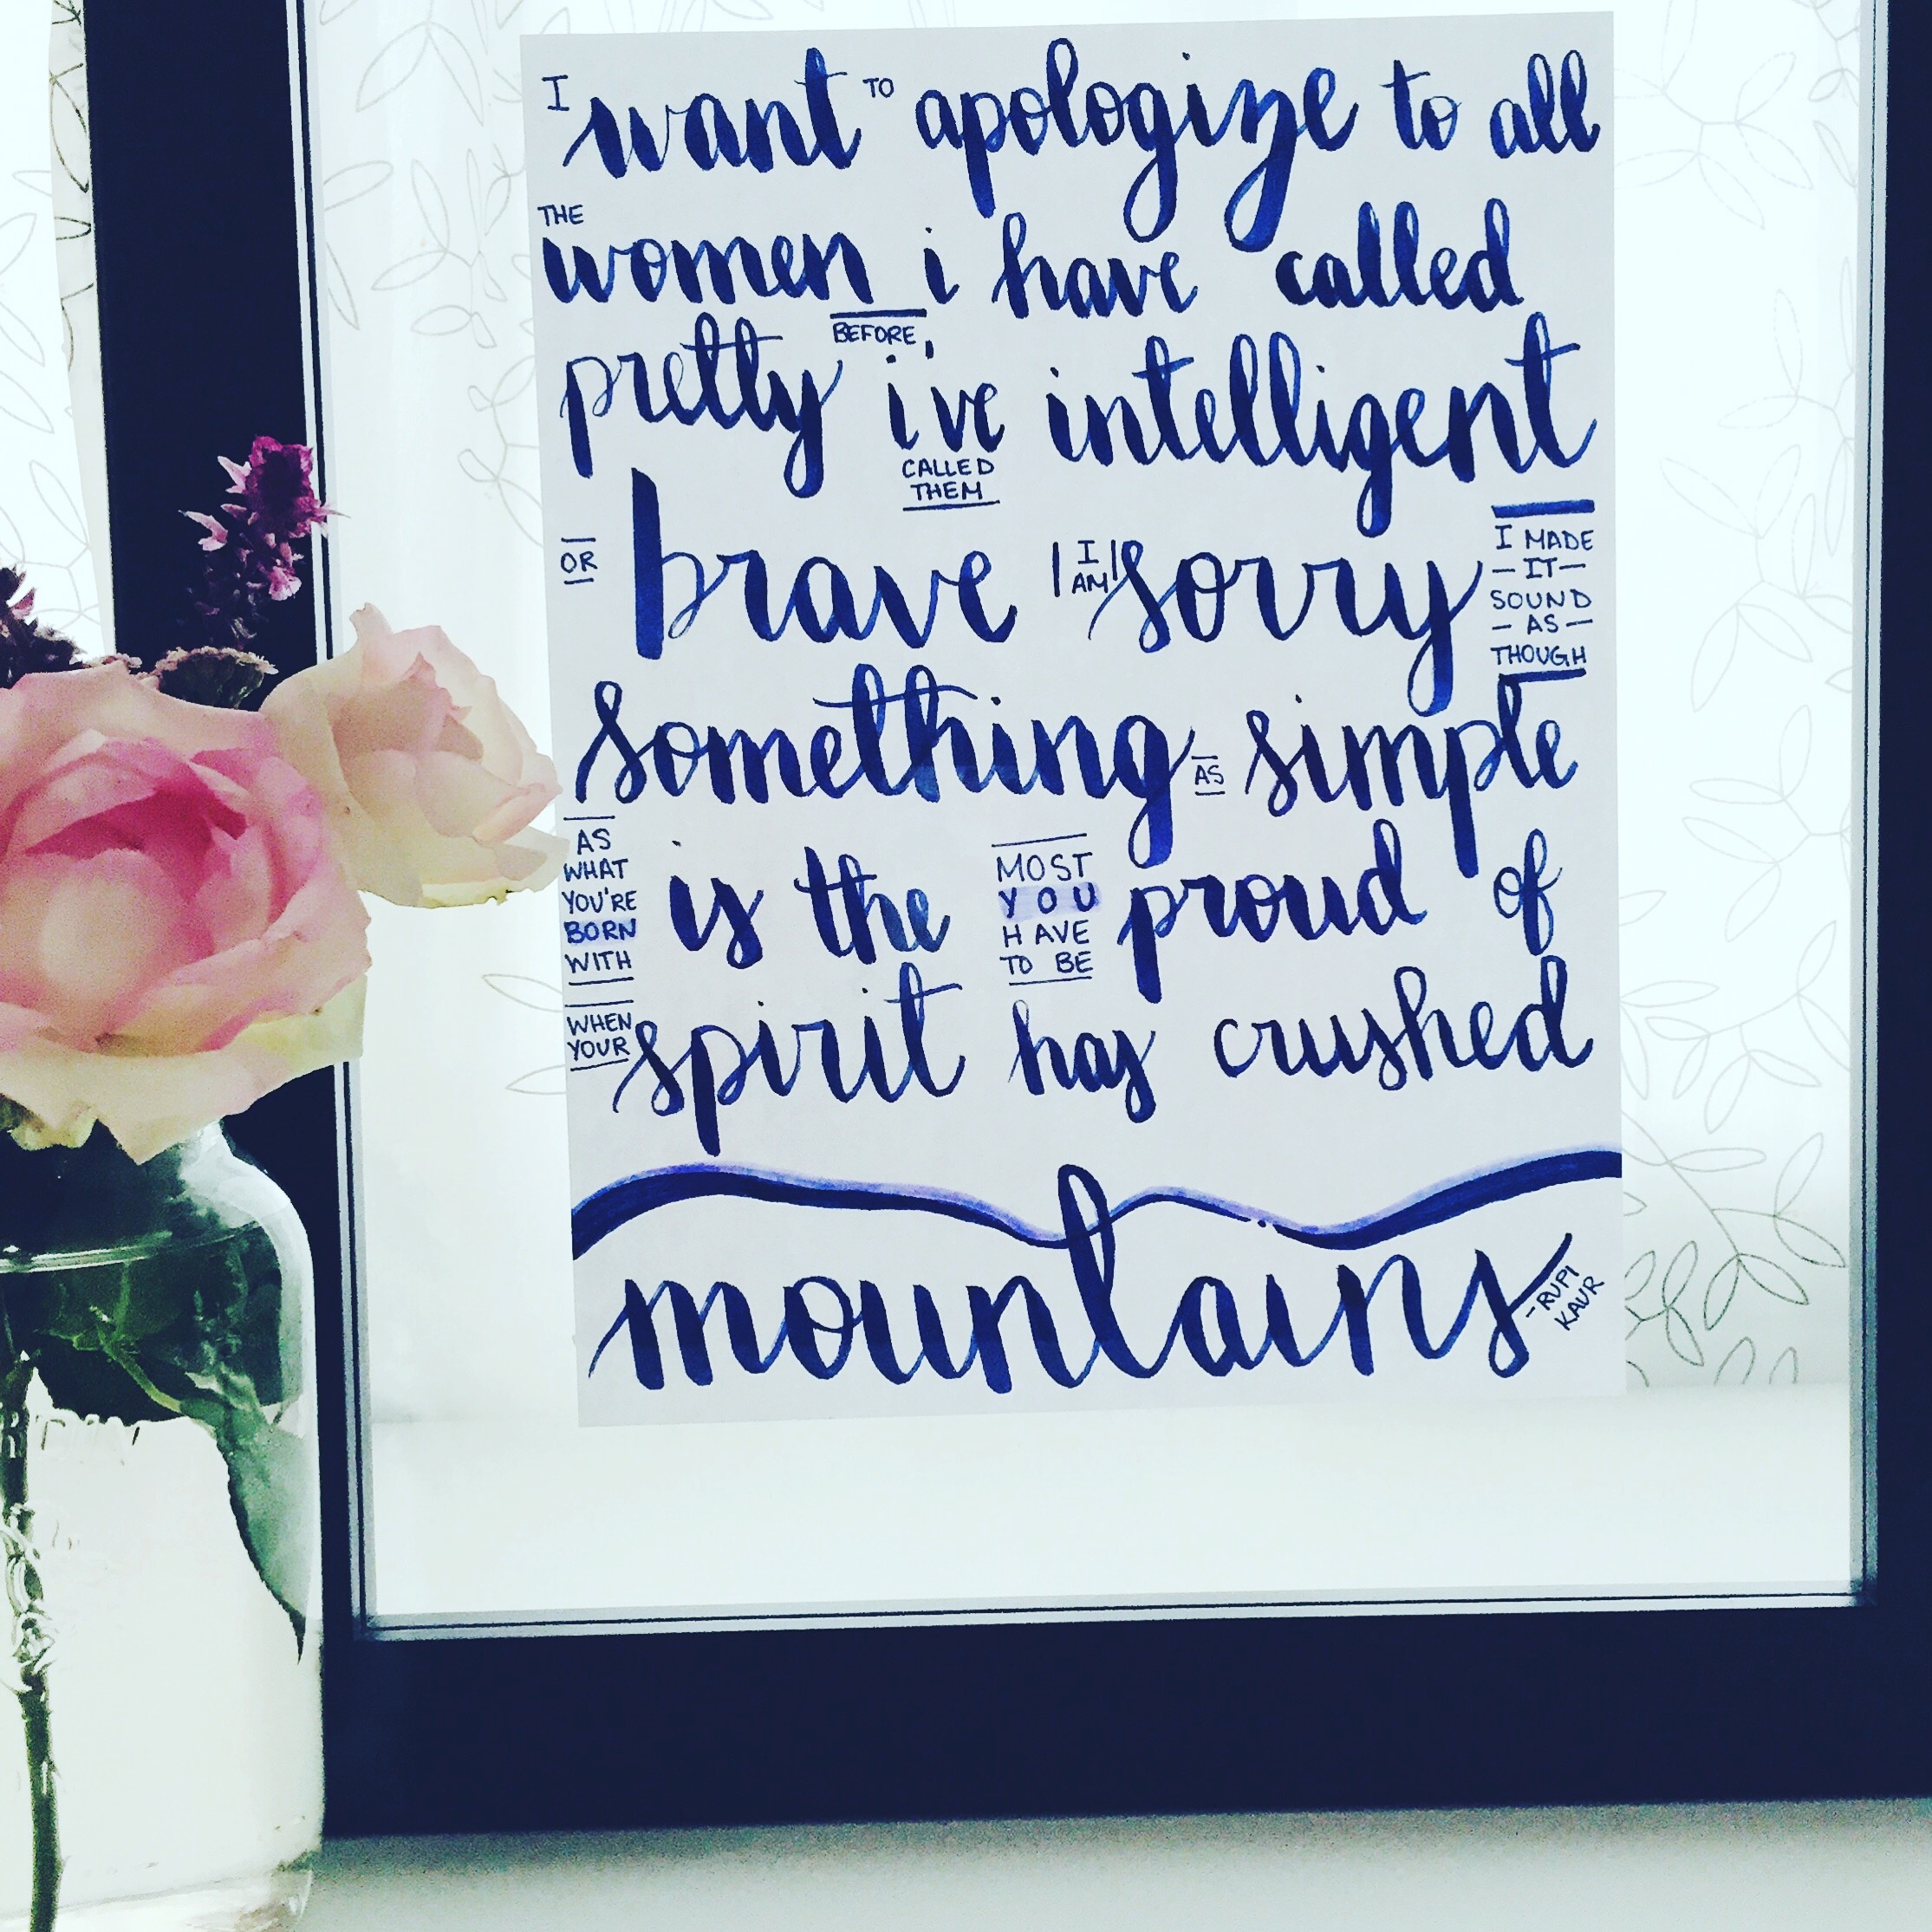 I want TO apologize to all
THE
women i have called
pretty BEFORE, i've CALLED THEM intelligent
OR brave I AM sorry I MADE IT SOUND AS THOUGH
something AS simple
AS WHAT YOU'RE BORN WITH is the MOST YOU HAVE TO BE proud of
WHEN YOUR spirit has crushed
mountains
-RUPI KAUR